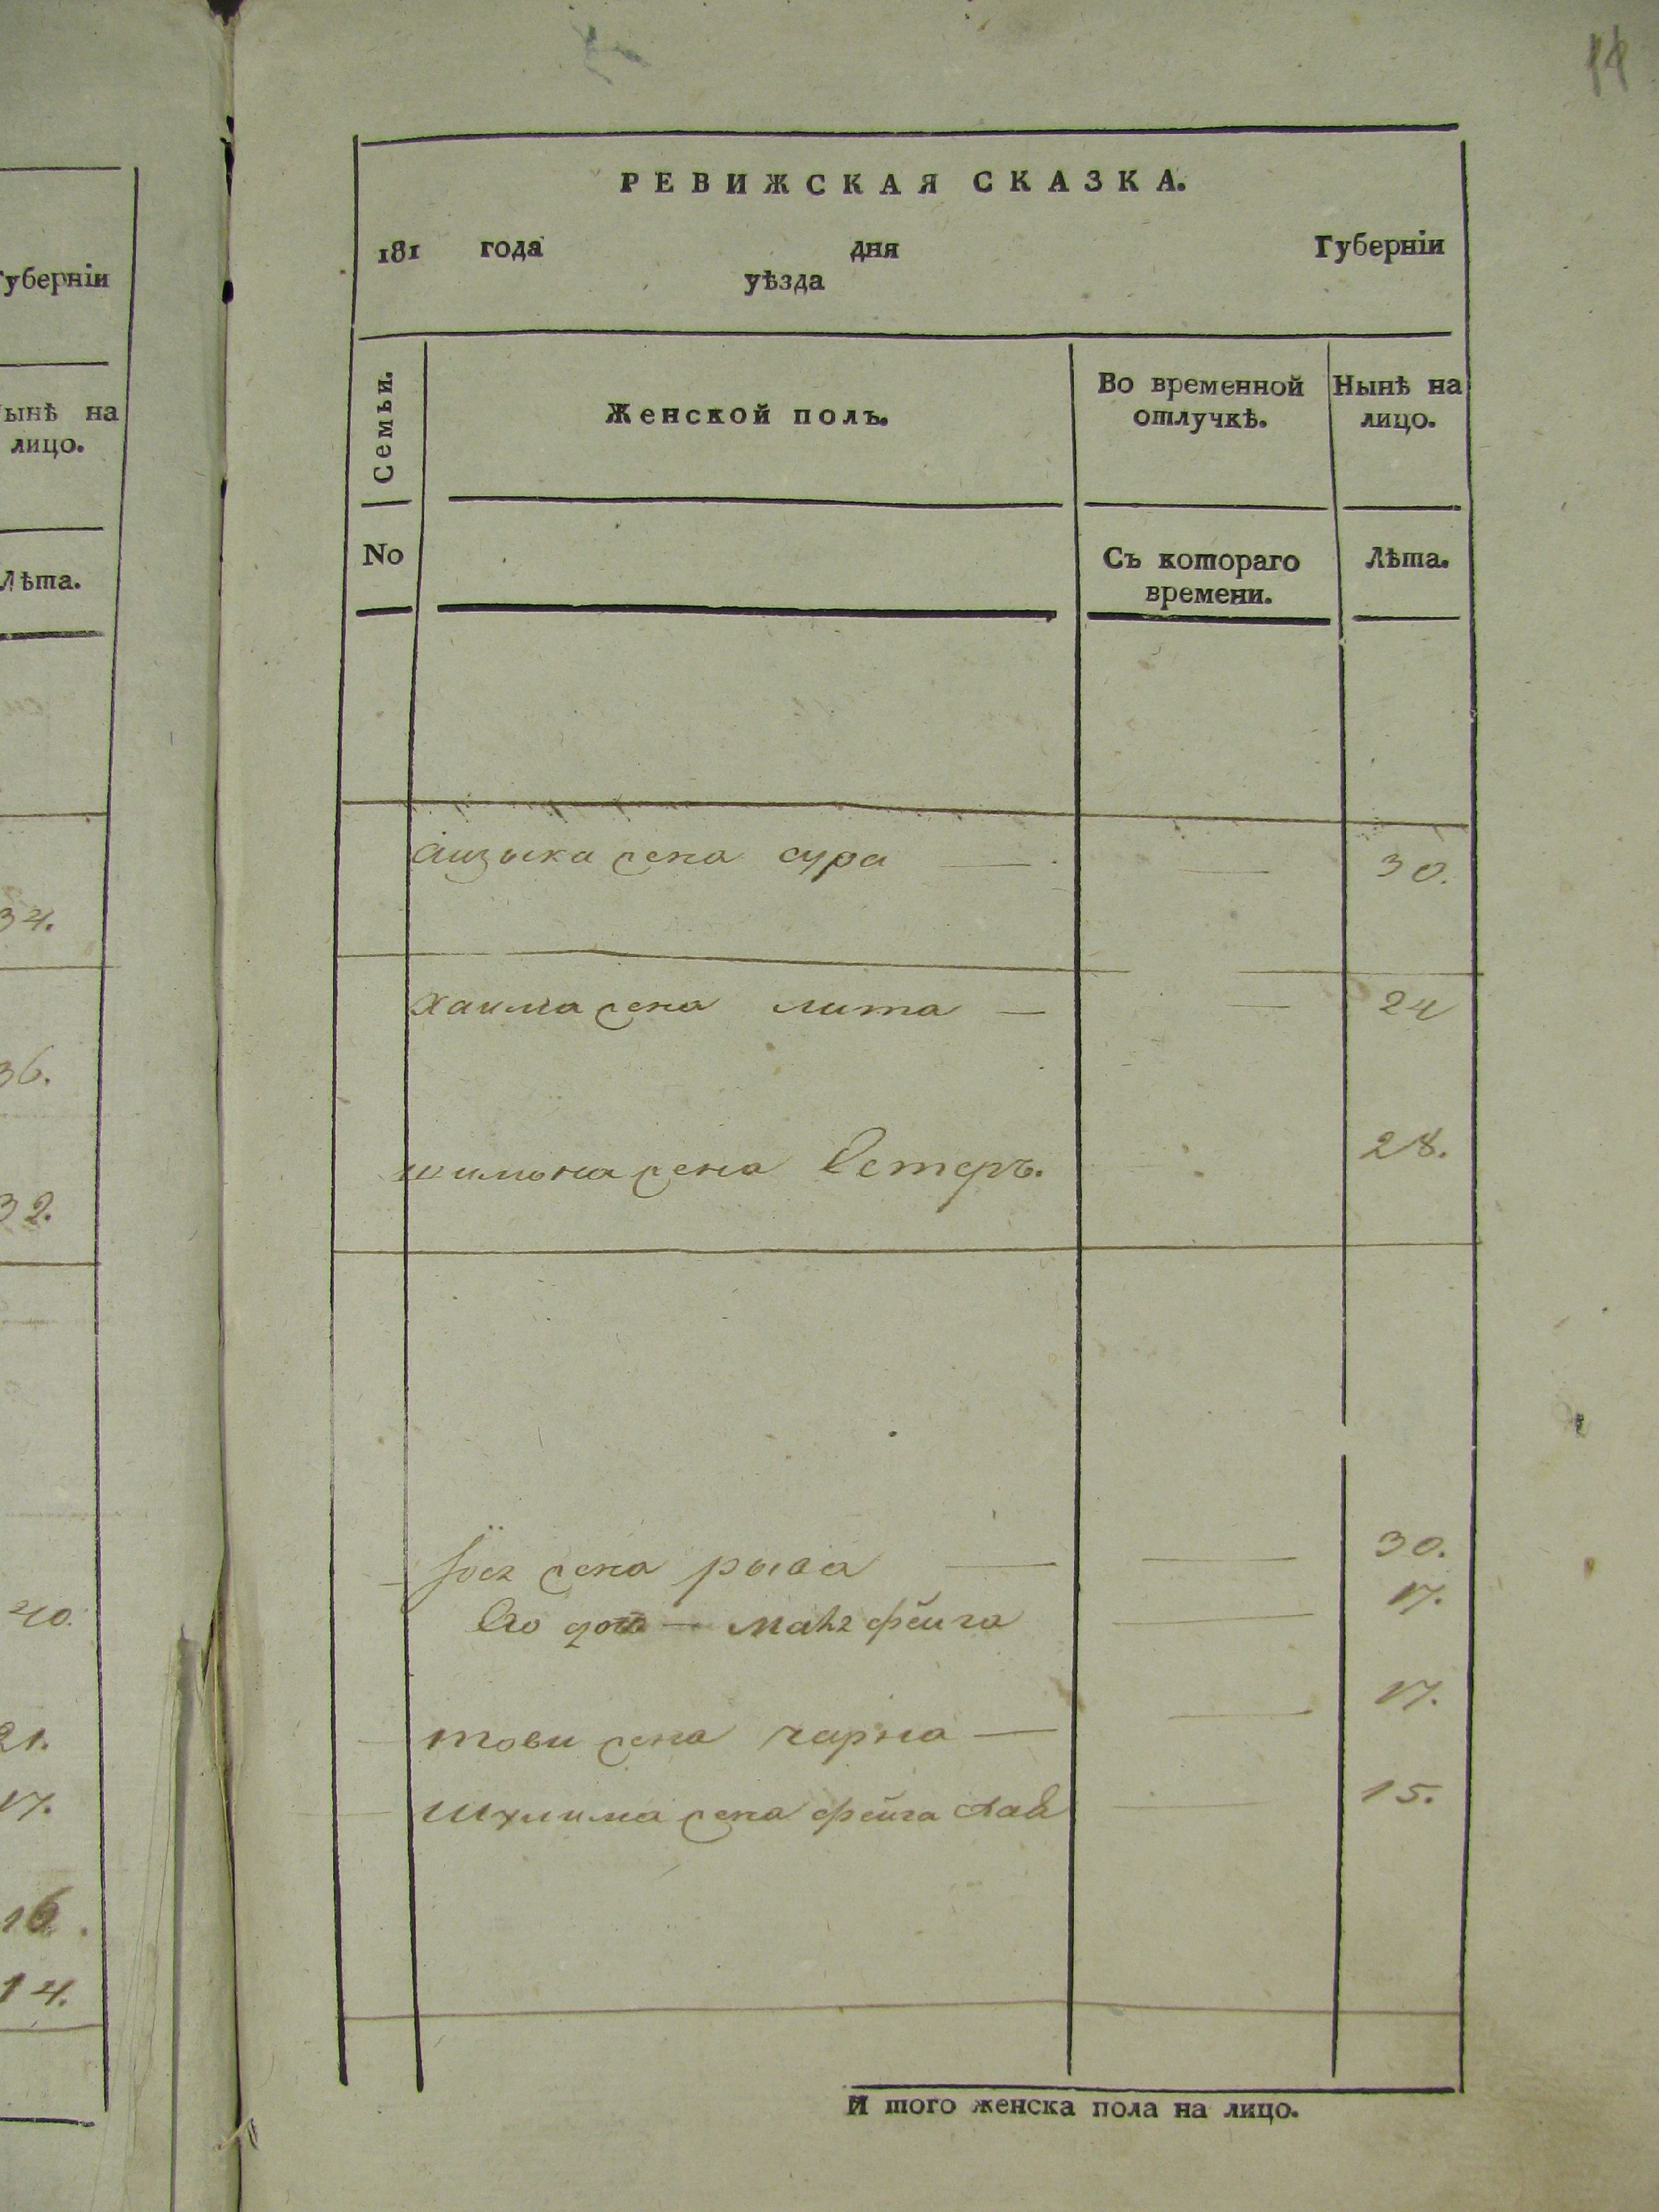 Губерніи
Нынѣ на
лицо.
Лѣта.
34.
36.
32.
40.
21.
17.
16.
14.
РЕВИЖСКАЯ СКАЗКА.
181 года дня Губерніи
уѣзда
Семьи. Женской полъ. Во временной Нынѣ на
отлучкѣ. лицо.
No Съ котораго Лѣта.
времени.
жена сура — — 30.
хаима жена лита — — 24
шимона жена Естеръ. 28.
жена рыва — — 30.
Его фейга — 17.
тови жена чарна — — 17.
шлима жена фейга — 15.
И того женска пола на лицо.